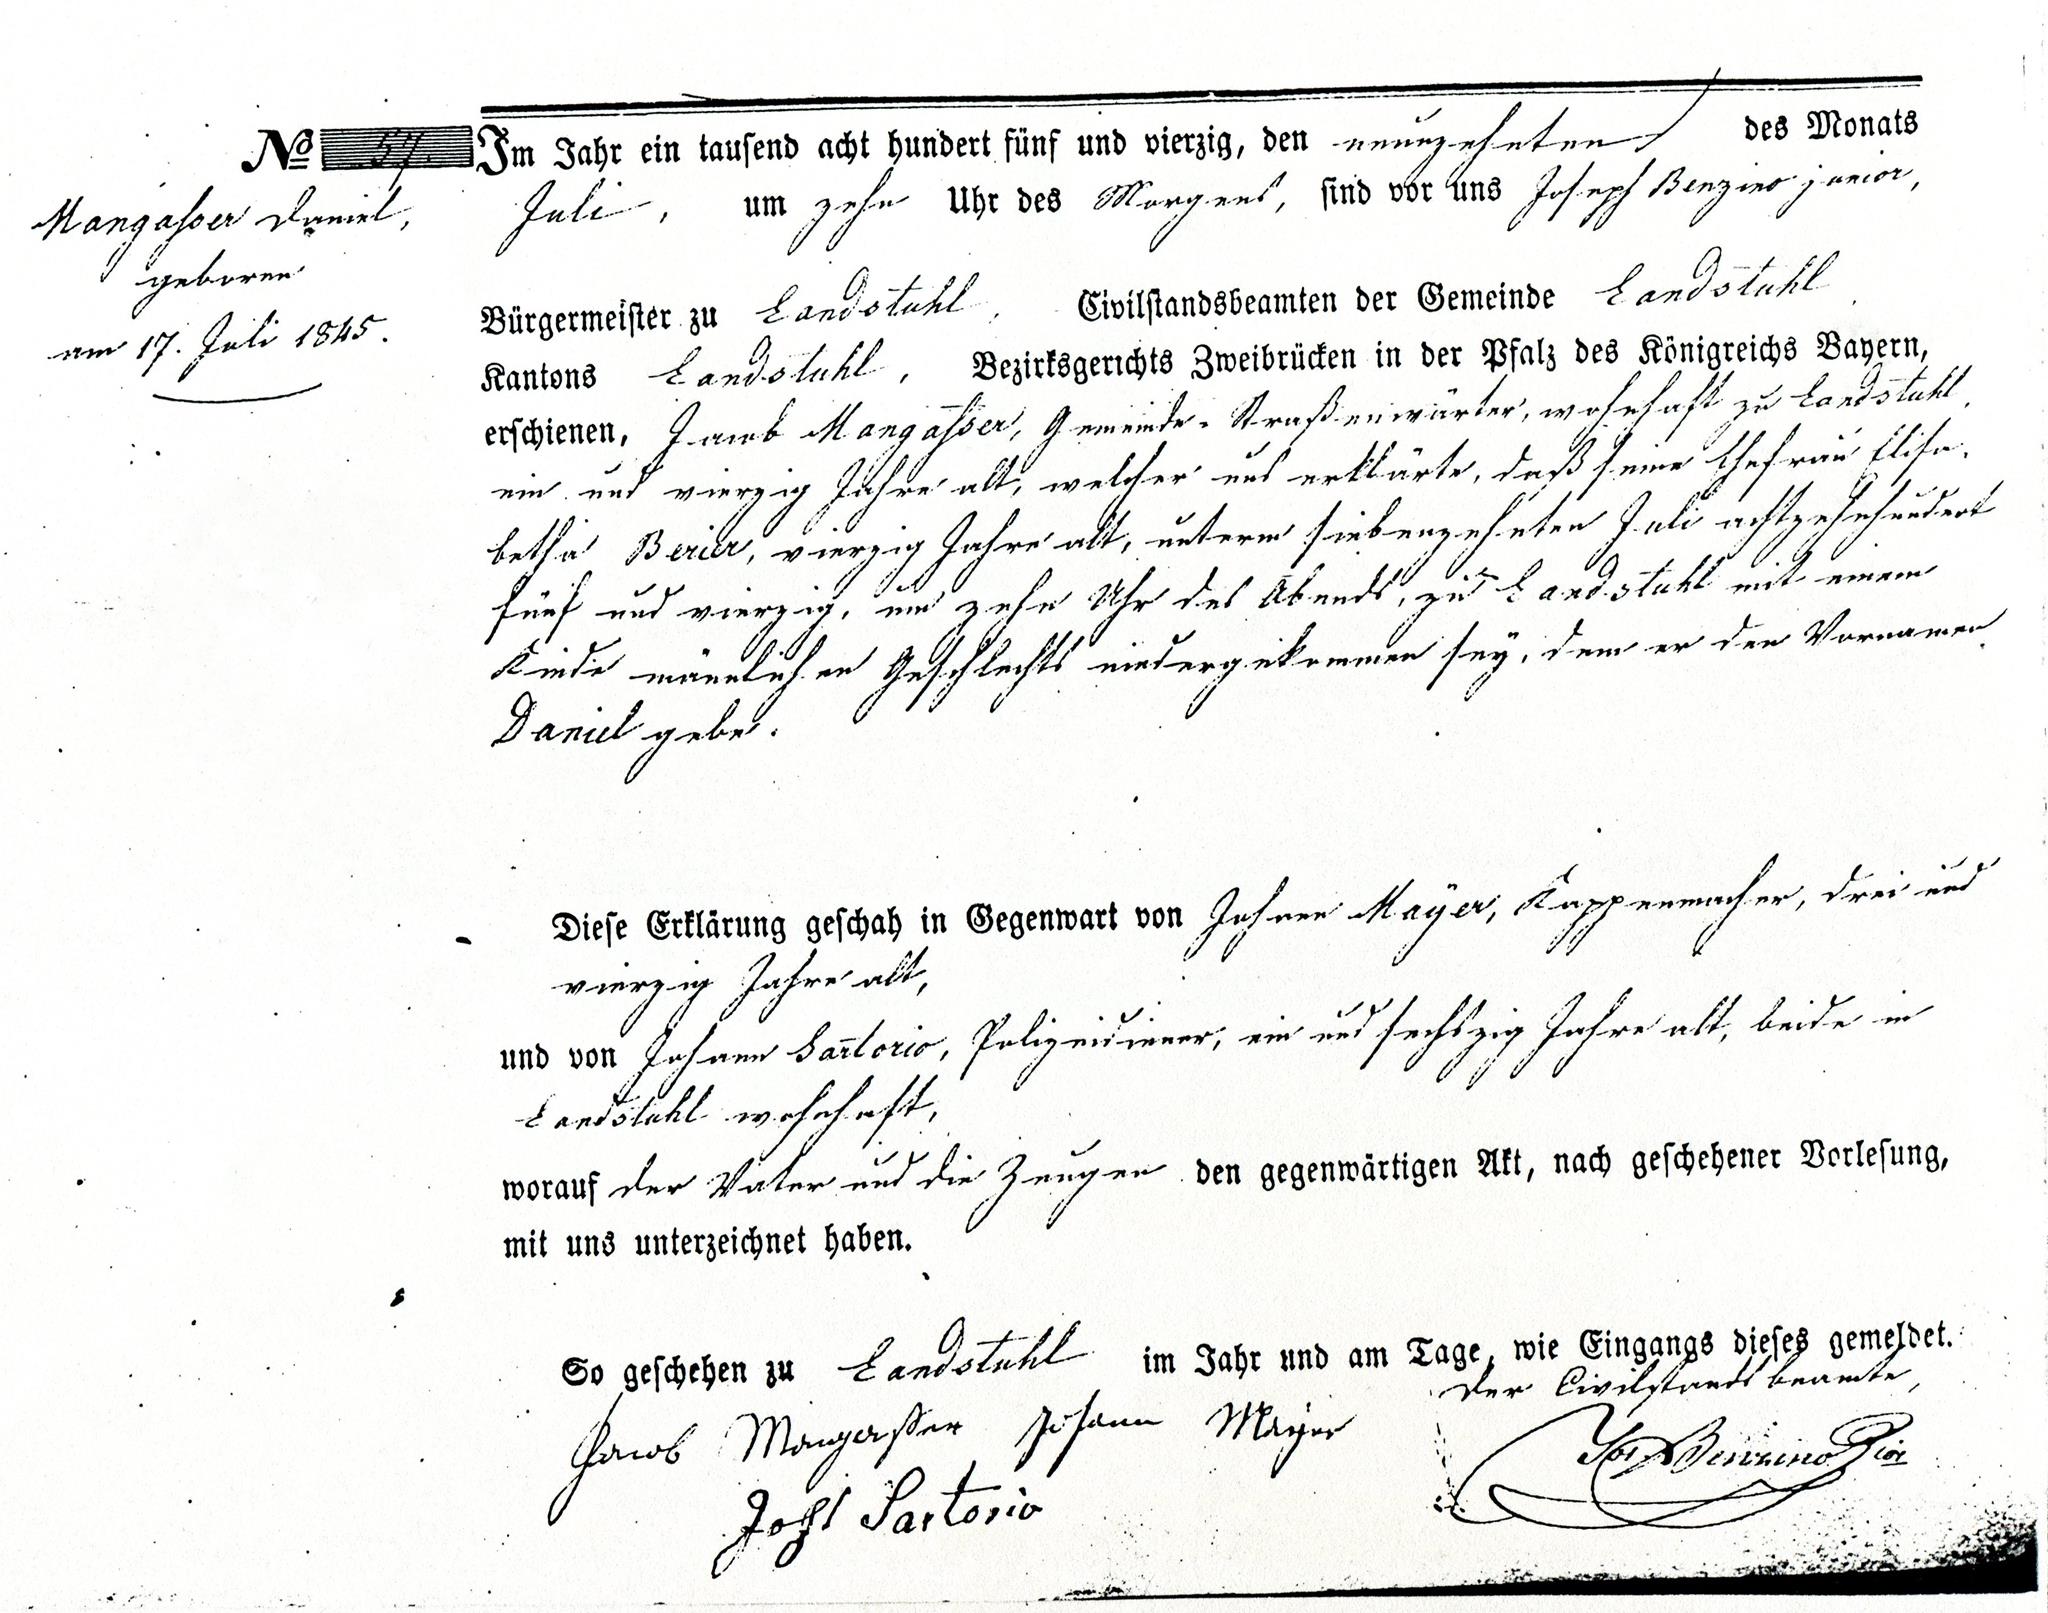 No 57.
Mangasser Daniel,
geboren
am 17. Juli 1845.
Im Jahr ein tausend acht hundert fünf und vierzig, den neunzehnten des Monats
Juli, um zehn Uhr des Morgens, sind vor uns Joseph Benzino junior,
Bürgermeister zu Landstuhl, Civilstandsbeamten der Gemeinde Landstuhl,
Kantons Landstuhl, Bezirksgerichts Zweibrücken in der Pfalz des Königreichs Bayern,
erschienen, Jacob Mangasser, Gemeinde-Straßenwärter, wohnhaft zu Landstuhl,
ein und vierzig Jahre alt, welcher uns erklärte, daß seine Ehefrau Elisa-
betha Berier, vierzig Jahre alt, unterm siebenzehnten Juli achtzehnhundert
fünf und vierzig, um zehn Uhr des Abends, zu Landstuhl mit einem
Kinde männlichen Geschlechts niedergekommen sey, dem er den Vornamen
Daniel gebe.
Diese Erklärung geschah in Gegenwart von Johann Mayer, Kappenmacher, drei und
vierzig Jahre alt,
und von Johann Sartorio, Polizeidiener, ein und sechszig Jahre alt, beide in
Landstuhl wohnhaft,
worauf der Vater und die Zeugen den gegenwärtigen Akt, nach geschehener Vorlesung,
mit uns unterzeichnet haben.
So geschehen zu Landstuhl im Jahr und am Tage, wie Eingangs dieses gemeldet.
Der Civilstandsbeamte,
Jacob Mangasser Johann Mayer
Jos Benzino Jior
Joh Sartorio